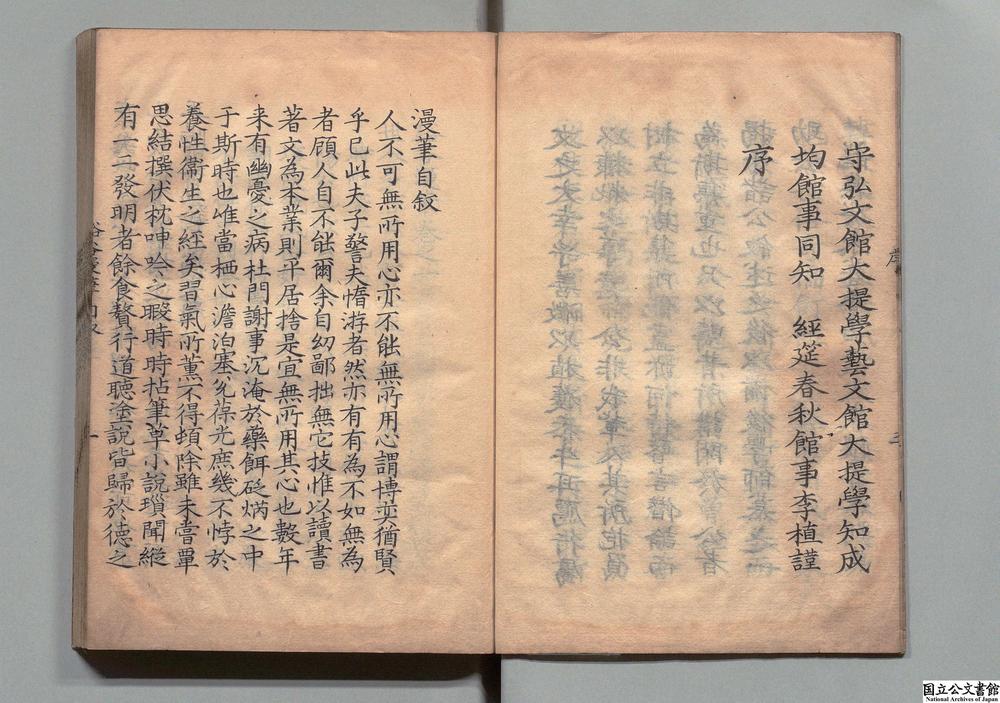 寺弘文館大提學藝文館大提學知成
均館事同知 經筵春秋館事李植謹
序
漫筆自叙
人不可無所用心亦不能無所用心謂博奕猶賢
乎已此夫子警夫惰游者然亦有有為不如無為
者顧人自不能爾余自幼鄙拙無它技惟以讀書
著文為本業則平居捨是宜無所用其心也數年
来有幽憂之病杜門謝事沉淹於藥餌砭焫之中
于斯時也惟當栖心澹泊塞兊葆光庶幾不悖於
養性衞生之經矣習氣所薰不得頓除雖未嘗覃
思結撰伏枕呻吟之暇時時拈筆草小說瑣聞縱
有一二發明者餘食贅行道聽塗說皆歸於德之
序
三
一
国立公文書館
National Archives of Japan